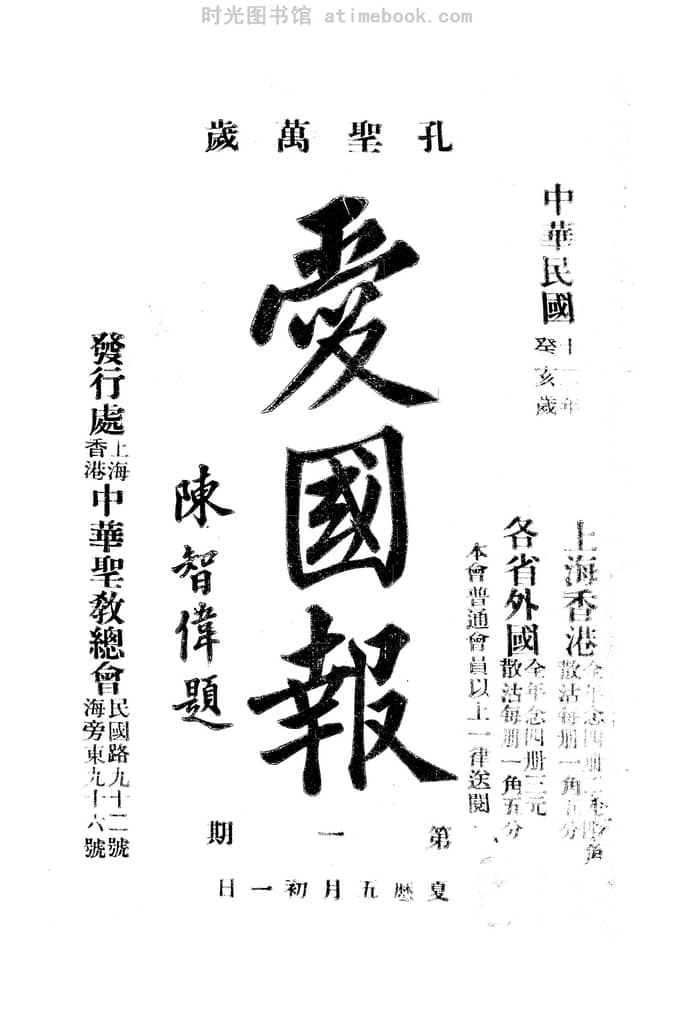 时光图书馆 atimebook.com
孔聖萬歲
中華民國十二年
癸亥歲
上海香港
散沽每册一角五分
各省外國全年念四册三元
散沽每册一角五分
本會普通會員以上一律送閱
愛國報
陳智偉題
第一期
夏曆五月初一日
發行處上海
香港
中華聖敎總會民國路九十二號
海旁東九十六號